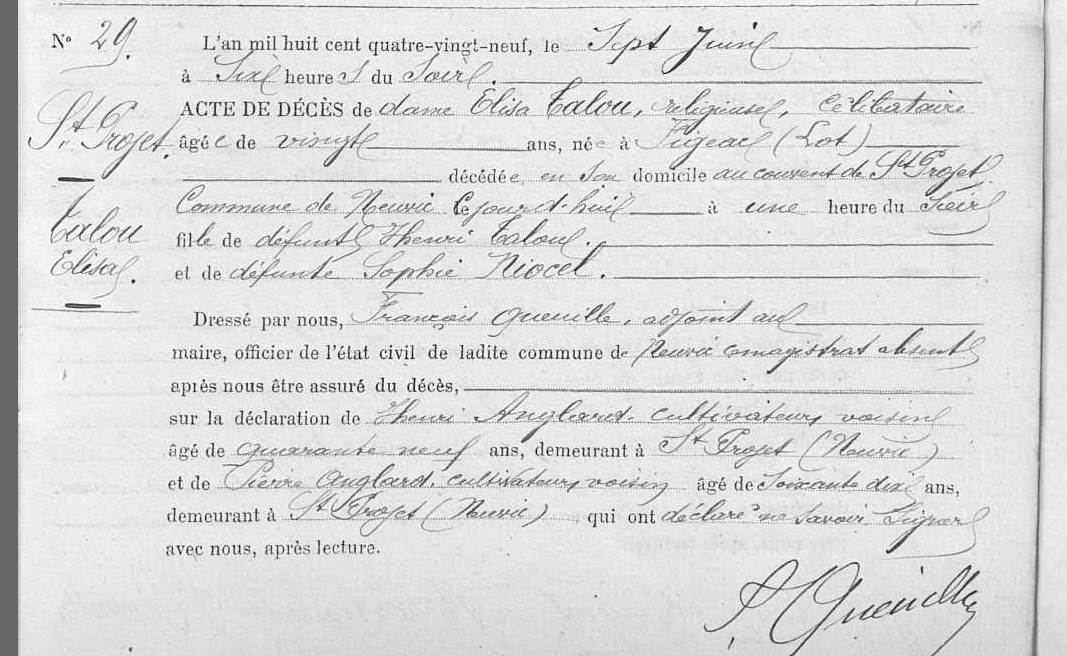 N° 29.
L'an mil huit cent quatre-vingt-neuf, le Sept Juin
à Six heures du Soir.
St Projet.
ACTE DE DÉCÈS de dame Elisa Talou, religieuse, célibataire
âgée de vingt ans, née à Figeac (Lot)
décédée en son domicile au couvent de St Projet
Commune de Neuvic ce jour d'hui à une heure du Soir
Talou
Elisa.
fille de défunt Henri Talou.
et de défunte Sophie Niocel.
Dressé par nous, François Queuille, adjoint au
maire, officier de l'état civil de ladite commune de Neuvic magistrat absent
après nous être assuré du décès,
sur la déclaration de Henri Anglard, cultivateur, voisin
âgé de quarante neuf ans, demeurant à St Projet (Neuvic)
et de Pierre Anglard, cultivateur, voisin âgé de Soixante dix ans,
demeurant à St Projet (Neuvic) qui ont déclaré ne savoir Signer
avec nous, après lecture.
F. Queuille